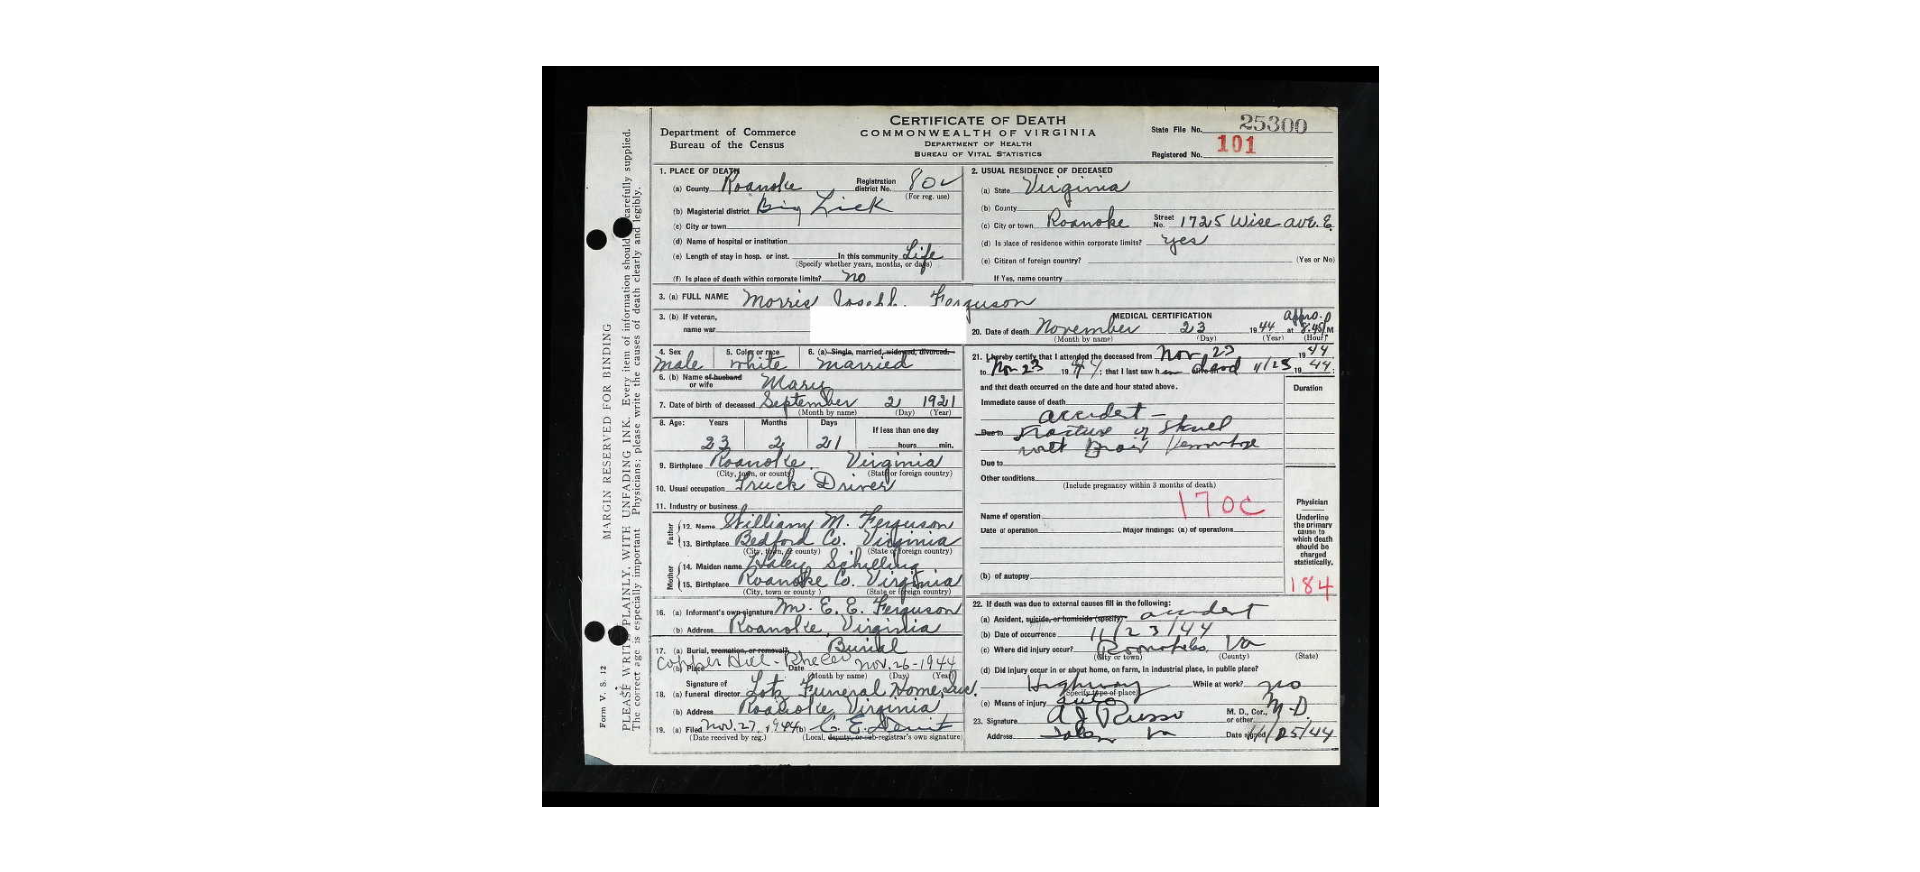 CERTIFICATE OF DEATH
COMMONWEALTH OF VIRGINIA
DEPARTMENT OF HEALTH
BUREAU OF VITAL STATISTICS
Department of Commerce
Bureau of the Census
State File No. 25300
Registered No. 101
MARGIN RESERVED FOR BINDING
PLEASE WRITE PLAINLY, WITH UNFADING INK. Every item of information should carefully supplied.
The correct age is especially important Physicians: please write the causes of death clearly and legibly.
Form V. S. 12
1. PLACE OF DEATH
(a) County Roanoke Registration district No. 80 (For reg. use)
(b) Magisterial district Big Lick
(c) City or town
(d) Name of hospital or institution
(e) Length of stay in hosp. or inst. In this community Life
(Specify whether years, months, or days)
(f) Is place of death within corporate limits? no
2. USUAL RESIDENCE OF DECEASED
(a) State Virginia
(b) County
(c) City or town Roanoke Street No. 1725 Wise ave. E.
(d) Is place of residence within corporate limits? yes
(e) Citizen of foreign country? (Yes or No)
If Yes, name country
3. (a) FULL NAME Morris Joseph Ferguson
3. (b) If veteran,
name war
4. Sex 5. Color or race 6. (a) Single, married, widowed, divorced.
male white married
6. (b) Name of husband or wife Mary
7. Date of birth of deceased September 2 1921
(Month by name) (Day) (Year)
8. Age: Years Months Days If less than one day
23 2 21 hours min.
9. Birthplace Roanoke, Virginia
(City, town, or county) (State or foreign country)
10. Usual occupation Truck Driver
11. Industry or business
Father
12. Name William M. Ferguson
13. Birthplace Bedford Co. Virginia
(City, town, or county) (State or foreign country)
Mother
14. Maiden name Haley Schilling
15. Birthplace Roanoke Co. Virginia
(City, town or county ) (State or foreign country)
16. (a) Informant's own signature M. E. E. Ferguson
(b) Address Roanoke, Virginia
17. (a) Burial, cremation, or removal Burial
(b) Place Copper Hill - Date Nov. 26-1944
(Month by name) (Day) (Year)
Signature of
18. (a) funeral director Lotz Funeral Home, Inc.
(b) Address Roanoke, Virginia
19. (a) Filed Nov. 27, 1944 (b) C. E.
(Date received by reg.) (Local, deputy, or sub-registrar's own signature)
MEDICAL CERTIFICATION
20. Date of death November 23 1944 at appro. 8:45 P M
(Month by name) (Day) (Year) (Hour)
21. I hereby certify that I attended the deceased from Nov 23 1944
to Nov 23 1944; that I last saw h dead 11/23 1944
and that death occurred on the date and hour stated above.
Duration
Immediate cause of death
accident -
Due to Fracture of Skull
with Brain Hemorrhage
Due to
Other conditions
(Include pregnancy within 3 months of death)
170C
Name of operation
Date of operation Major findings: (a) of operations
(b) of autopsy
Physician
Underline the primary cause to which death should be charged statistically.
184
22. If death was due to external causes fill in the following:
(a) Accident, suicide, or homicide (specify) accident
(b) Date of occurrence 11/23/44
(c) Where did injury occur? Roanoke Co, Va
(City or town) (County) (State)
(d) Did injury occur in or about home, on farm, in industrial place, in public place?
Highway While at work? no
(Specify type of place)
(e) Means of injury auto
23. Signature A J Russo M. D., Cor., or other. M-D.
Address Salem Va Date signed 11/25/44